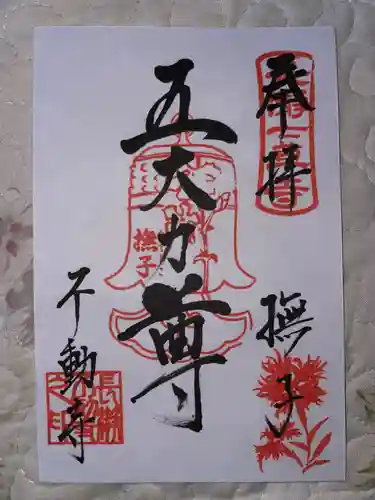 奉拝
撫子
五大力尊
撫子
不動寺